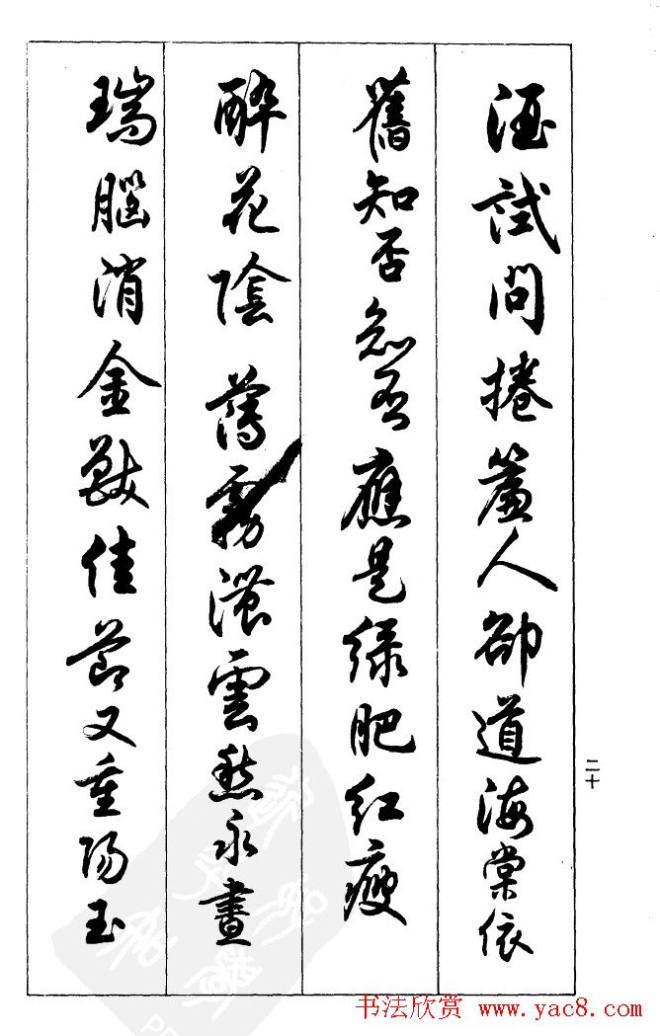 酒試問捲簾人卻道海棠依
舊知否知否應是緑肥紅瘦
醉花陰 薄霧濃雲愁永晝
瑞腦消金獸佳節又重陽玉
二十
书法欣赏 www.yac8.com